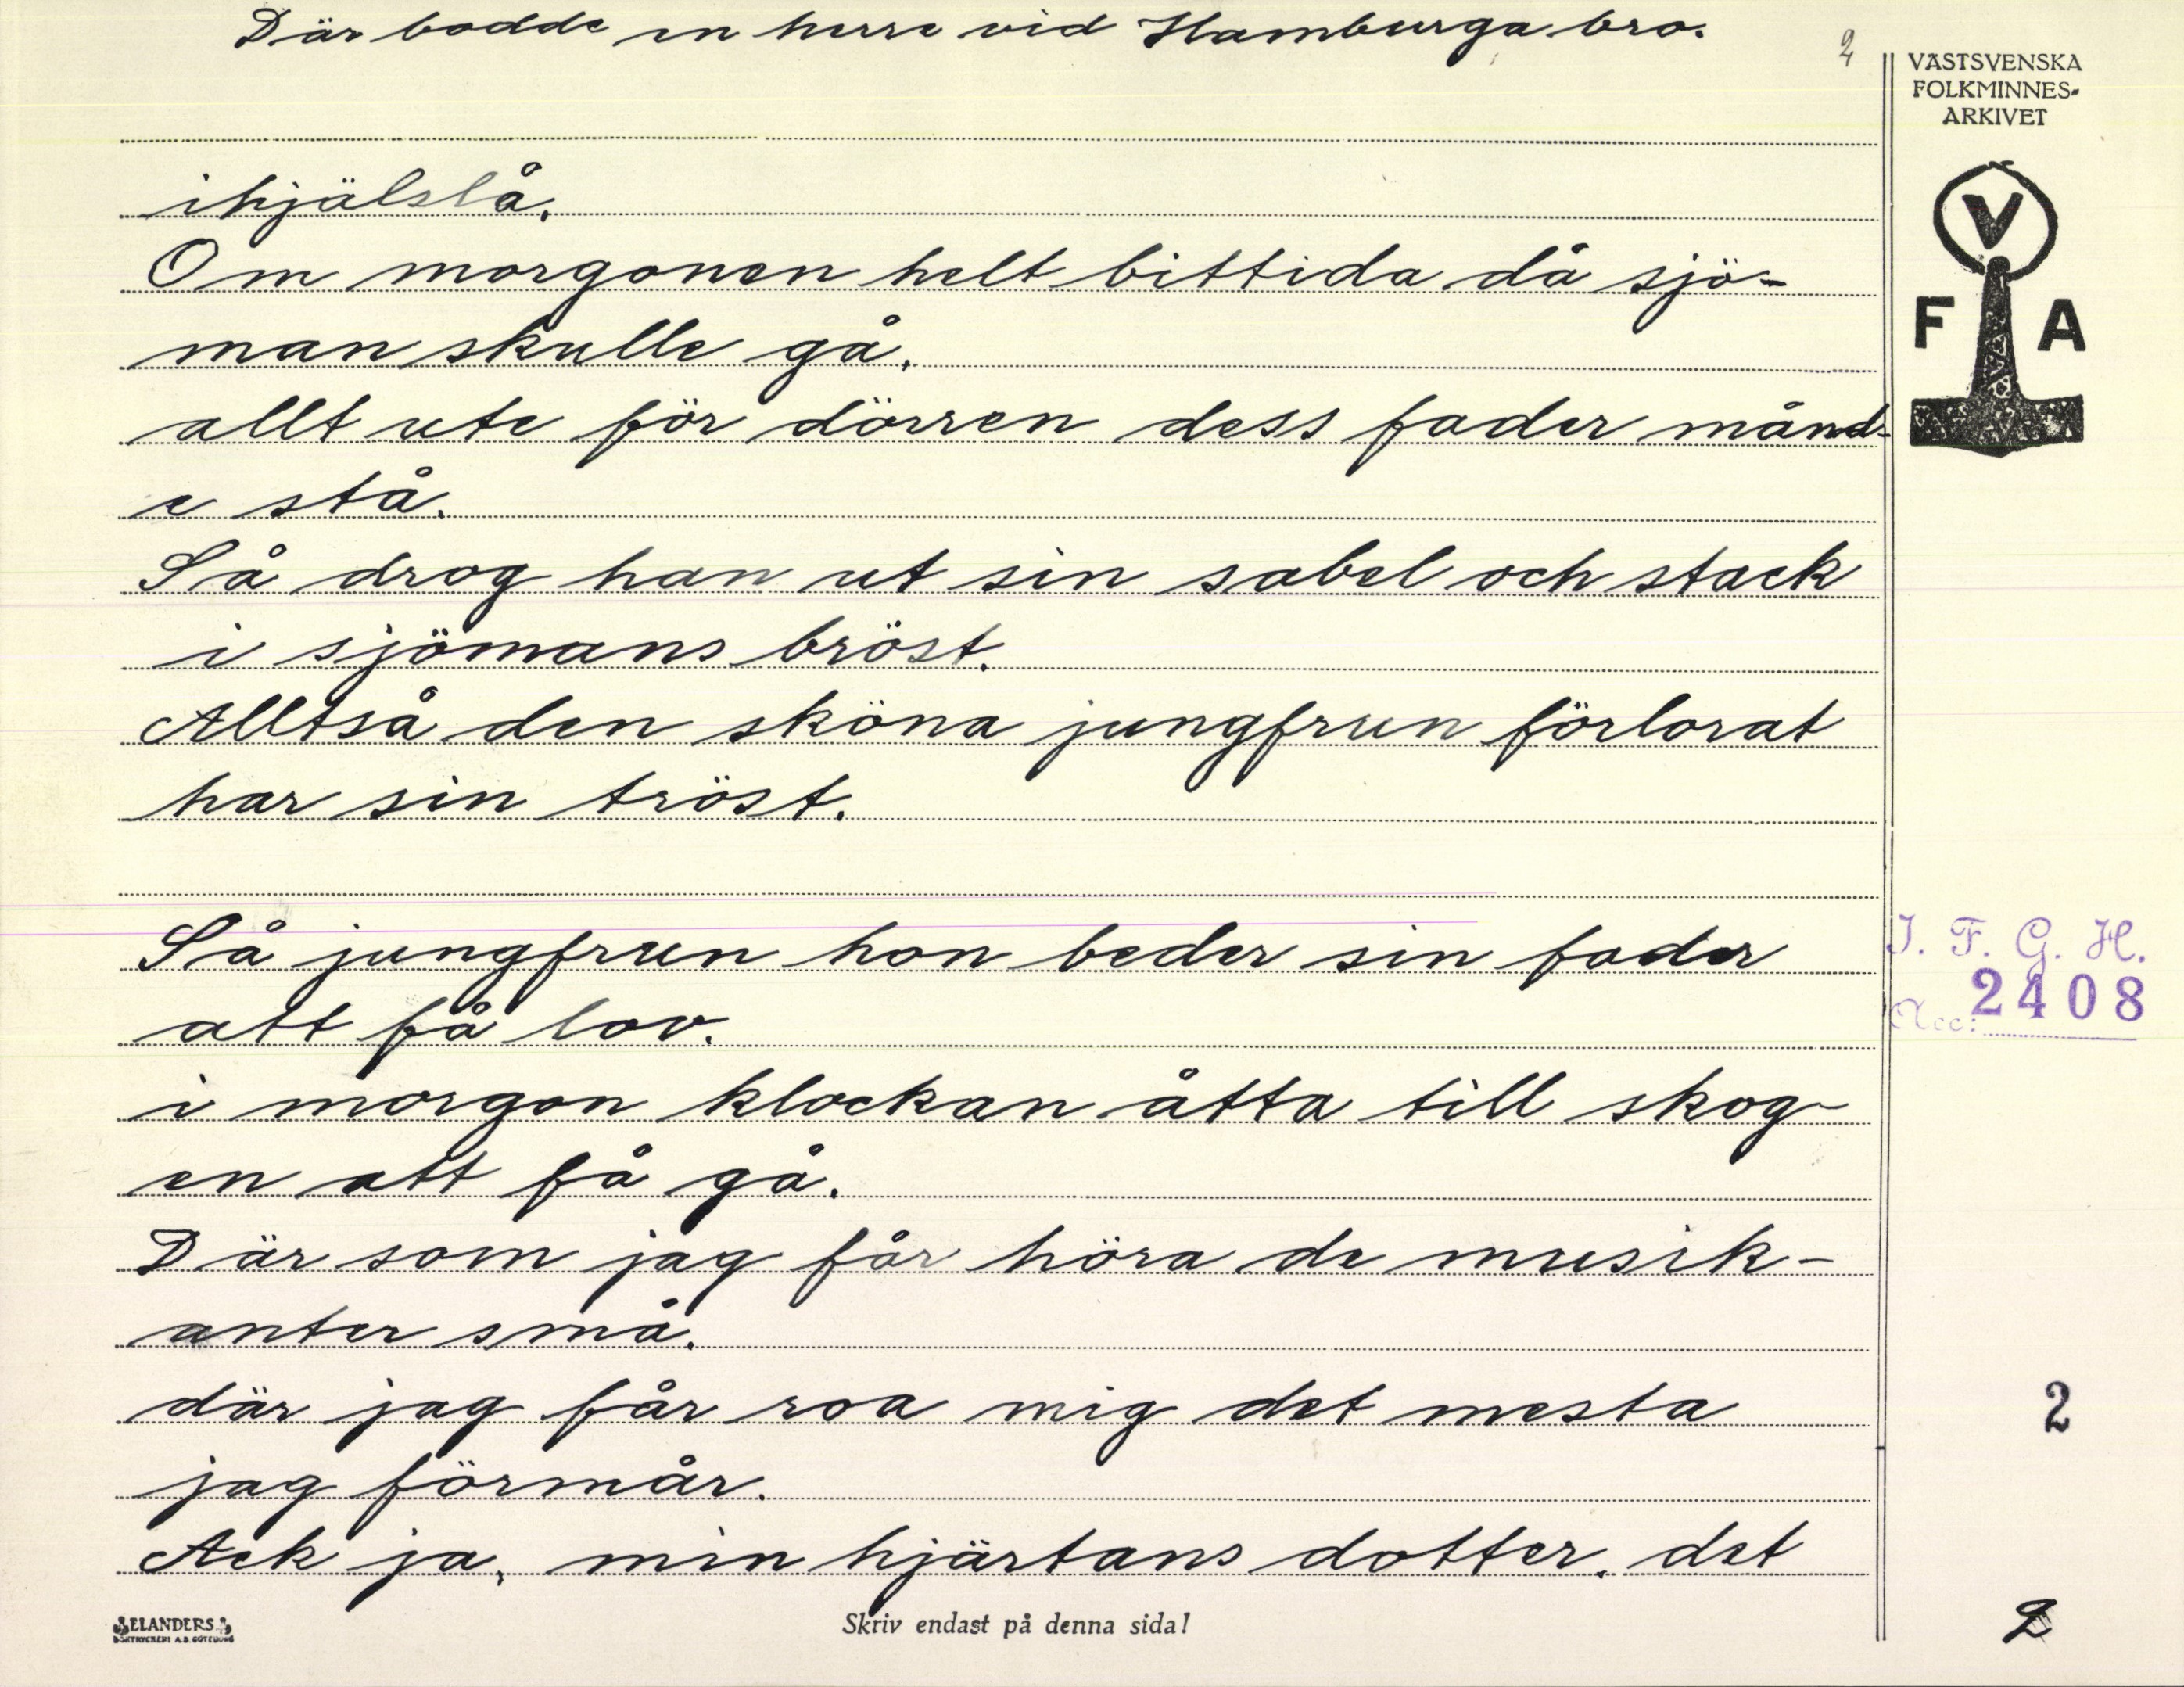 Där bodde en herre vid Hamburga bro.
2
VÄSTSVENSKA
FOLKMINNES-
ARKIVET
V
F A
ihjälslå.
Om morgonen helt bittida då sjö-
man skulle gå.
allt ute för dörren dess fader månd-
e stå.
Så drog han ut sin sabel och stack
i sjömans bröst.
Alltså den sköna jungfrun förlorat
har sin tröst.
Så jungfrun hon beder sin fader
att få lov.
I. F. G. H.
Acc: 2408
i morgon klockan åtta till skog-
en att få gå.
Där som jag får höra de musik-
anter små.
där jag får roa mig det mesta
2
jag förmår.
Ack ja, min hjärtans dotter. det
ELANDERS
BOKTRYCKERI A.B. GÖTEBORG
Skriv endast på denna sida!
2